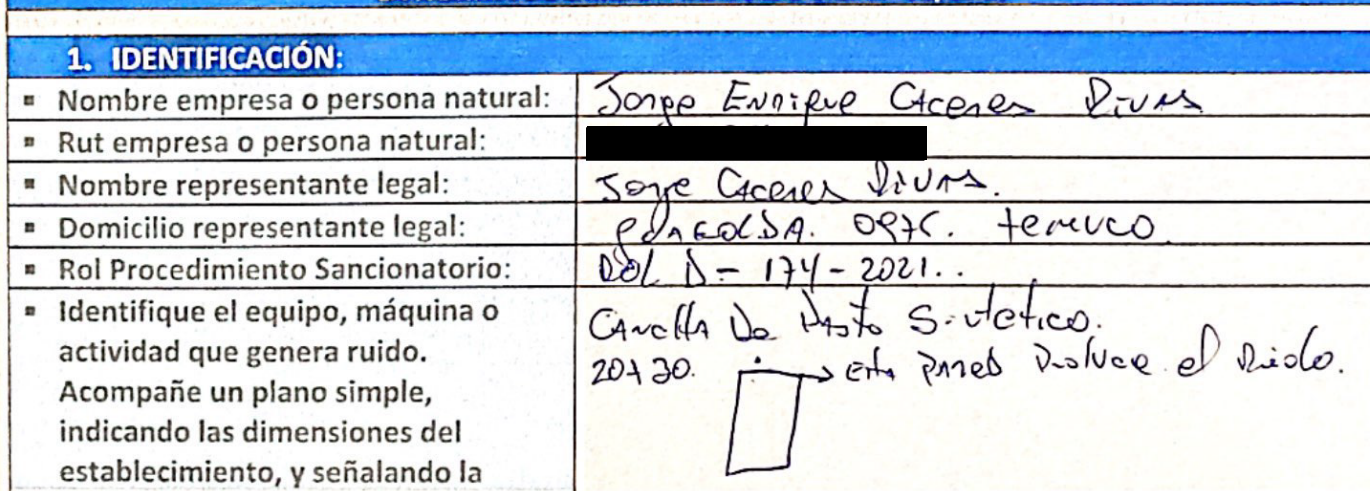 1. IDENTIFICACIÓN:
▪ Nombre empresa o persona natural: Jorge Enrique Caceres Rivas
▪ Rut empresa o persona natural:
▪ Nombre representante legal: Jorge Caceres Rivas.
▪ Domicilio representante legal: 0976. temuco
▪ Rol Procedimiento Sancionatorio: Rol D - 174 - 2021..
▪ Identifique el equipo, máquina o
actividad que genera ruido.
Acompañe un plano simple,
indicando las dimensiones del
establecimiento, y señalando la
Cancha De Pasto Sintetico.
20x30. esta pared produce el Ruido.